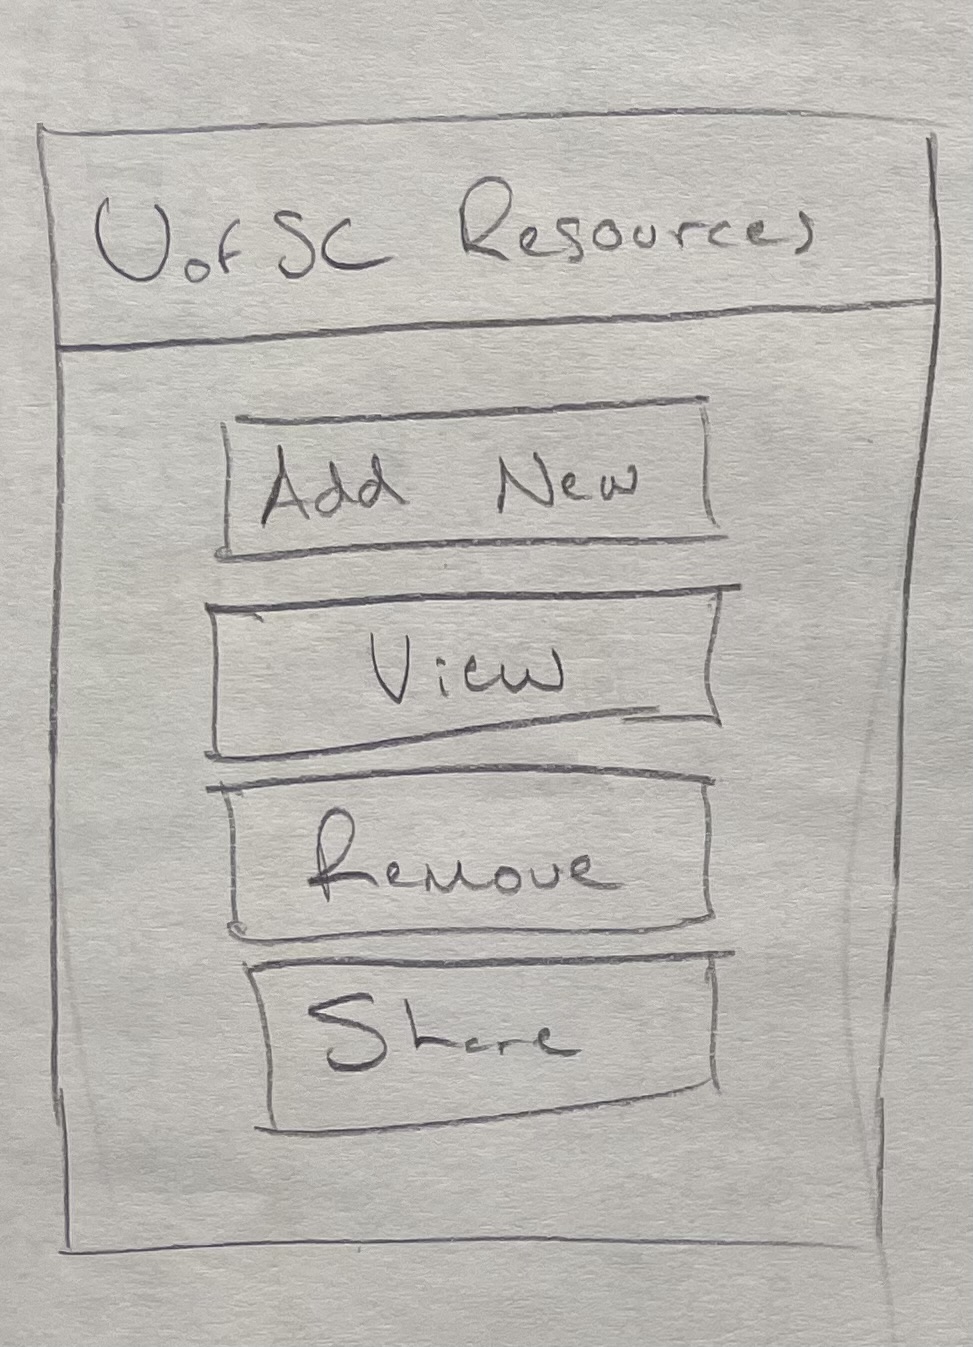 UofSC Resources
Add New
View
Remove
Share